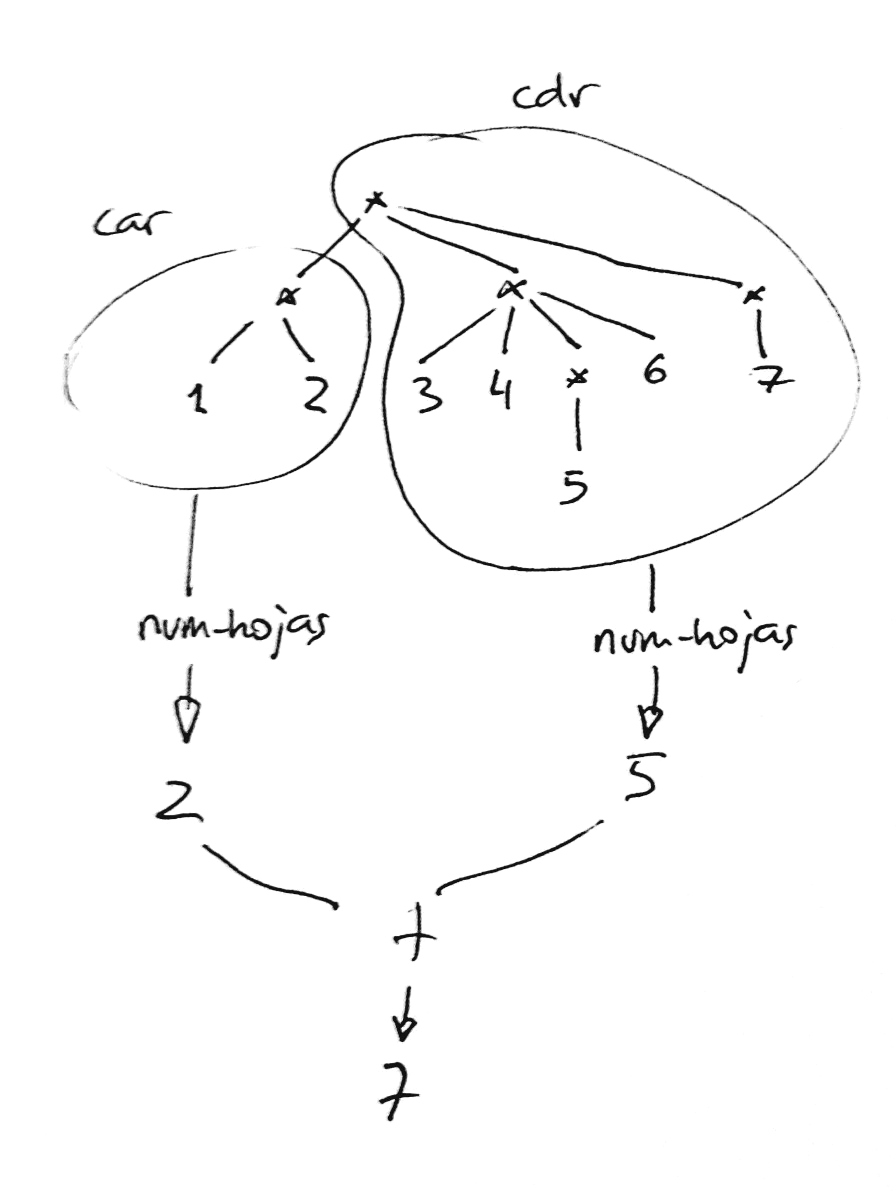 cdr
car
* 
* * *
1 2 3 4 * 6 7
5
num-hojas num-hojas
2 5
+
7